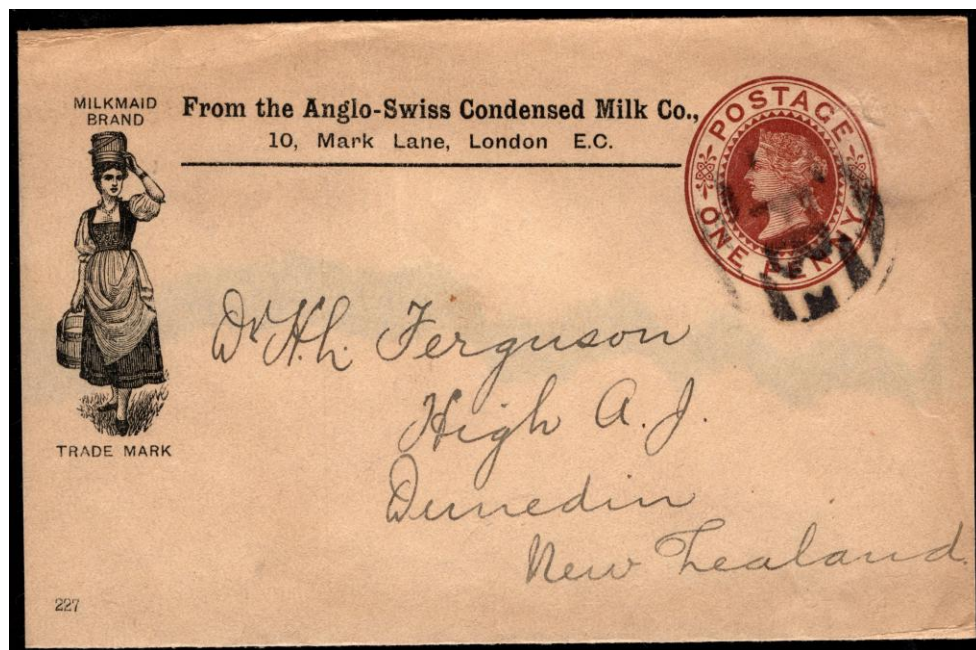 MILKMAID
BRAND
From the Anglo-Swiss Condensed Milk Co.,
10, Mark Lane, London E.C.
POSTAGE
ONE PENNY
Dr H. L. Ferguson
High
Dunedin
New Zealand
TRADE MARK
227